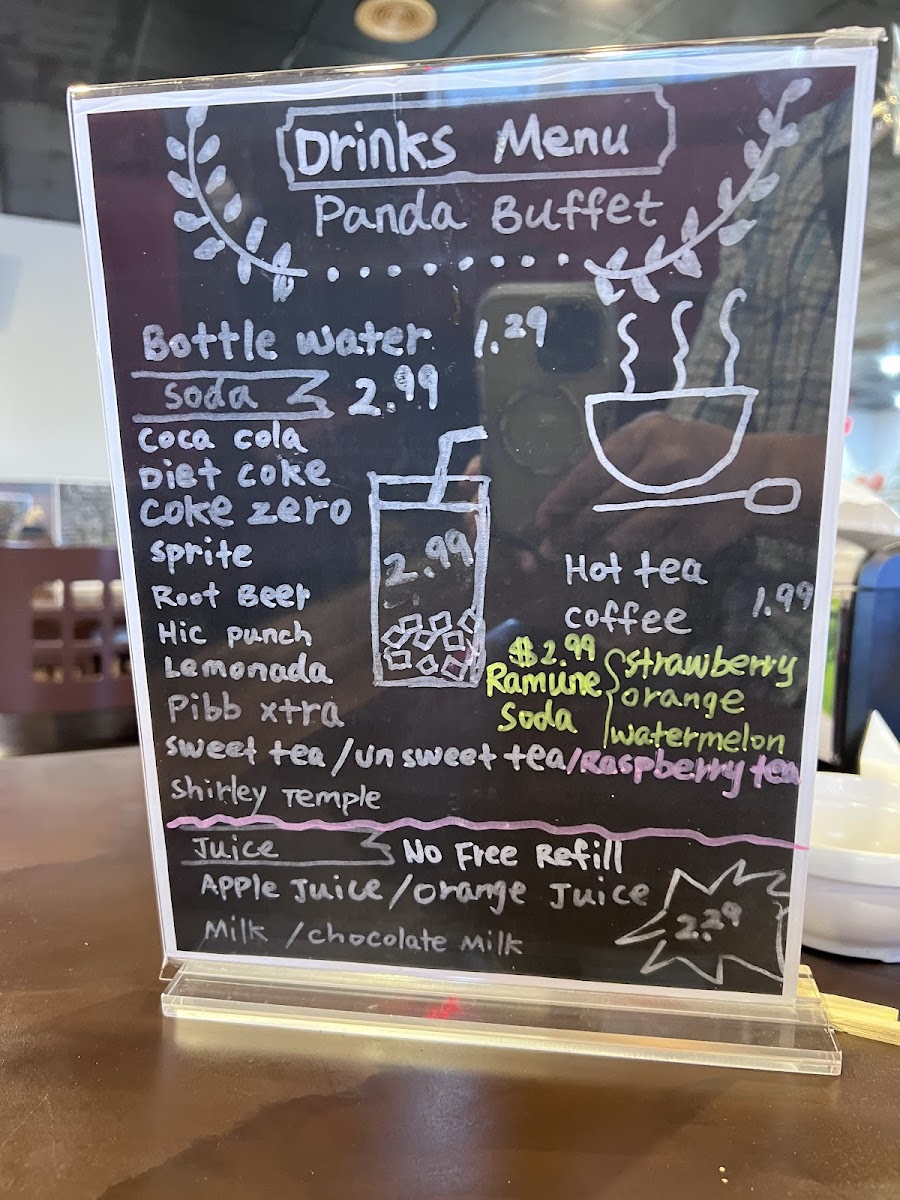 Drinks Menu
Panda Buffet
Bottle water 1.29
soda 2.99
coca cola
Diet coke
coke zero
sprite
Root Beer
Hic punch
Lemonada
Pibb xtra
sweet tea / un sweet tea / Raspberry tea
shirley Temple
2.99
Hot tea
coffee 1.99
$2.99
Ramune soda
strawberry
orange
watermelon
Juice No Free Refill
Apple Juice / orange Juice
Milk / chocolate Milk
2.29